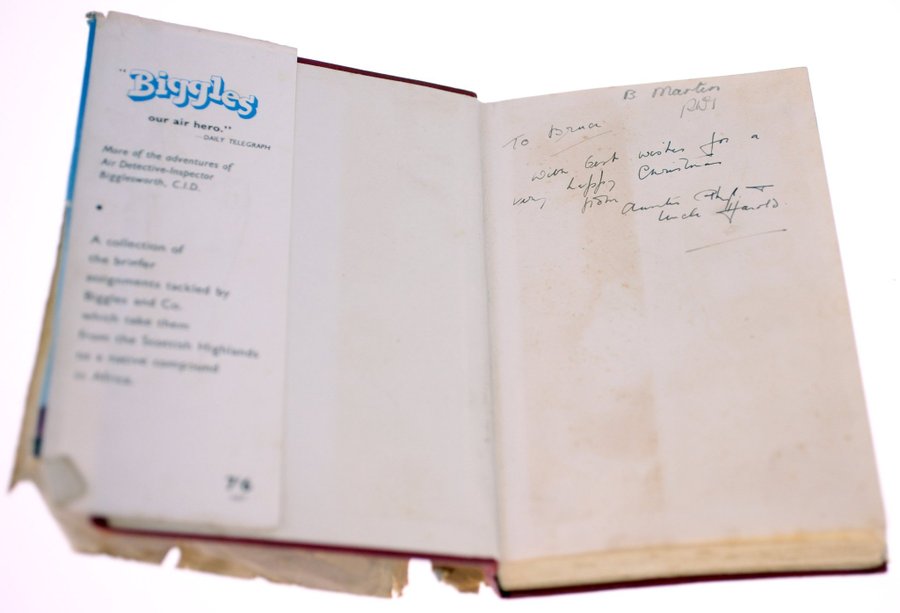 "Biggles
our air hero."
—DAILY TELEGRAPH
More of the adventures of
Air Detective-Inspector
Bigglesworth, C.I.D.
A collection of
the briefer
assignments tackled by
Biggles and Co.
which take them
from the Scottish Highlands
to a native compound
in Africa.
7'6
B Martin
To Bruce
with best wishes for a
very happy Christmas
from Auntie Phyl. &
Uncle Harold.